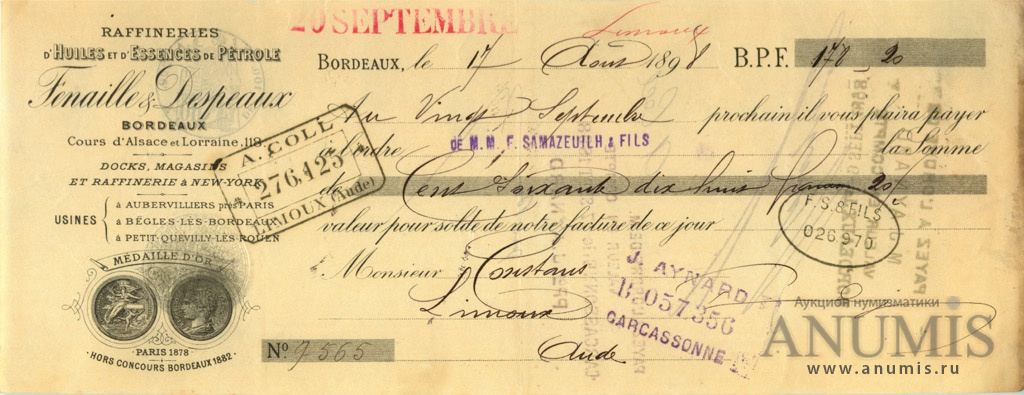 20 SEPTEMBRE
Limoux
RAFFINERIES
D'HUILES ET D'ESSENCES DE PÉTROLE
Fenaille & Despeaux
BORDEAUX
Cours d'Alsace et Lorraine, 118.
DOCKS, MAGASINS
ET RAFFINERIE à NEW-YORK
USINES
à AUBERVILLIERS près PARIS
à BÈGLES-LÈS-BORDEAUX
à PETIT-QUEVILLY-LÈS-ROUEN
MÉDAILLE D'OR
PARIS 1878
HORS CONCOURS BORDEAUX 1882
A. COLL
276.125
LIMOUX (Aude)
BORDEAUX, le 17 Août 1898 B.P.F. 178 20
Au Vingt Septembre prochain il vous plaira payer
à l'ordre DE M.M. F. SAMAZEUILH & FILS la Somme
de Cent Soixante dix huit francs 20c
valeur pour solde de notre facture de ce jour
F. S. & FILS
026.970
à Monsieur Constans
Limoux
Aude
J. AYNARD
B 057356
CARCASSONNE
No 7565
Аукцион нумизматики
ANUMIS
www.anumis.ru